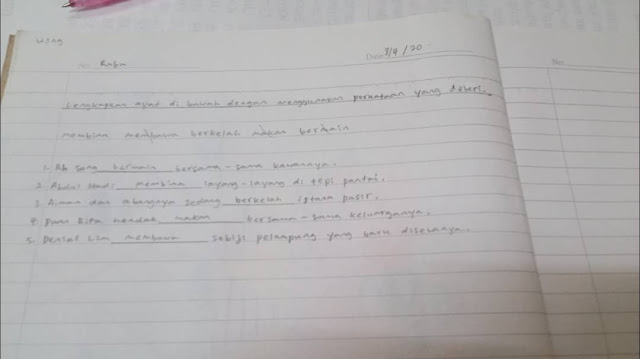 No. Rabu
Date 8/4/20
Lengkapkan ayat di bawah dengan menggunakan perkataan yang diberi.
membina membawa berkelah makan bermain
1. Ah Song bermain bersama-sama kawannya.
2. Abdul Hadi membina layang-layang di tepi pantai.
3. Aiman dan abangnya sedang berkelah istana pasir.
4. Puan Rita hendak makan bersama-sama keluarganya.
5. Encik Lim membawa sebiji pelampung yang baru disewanya.
No.